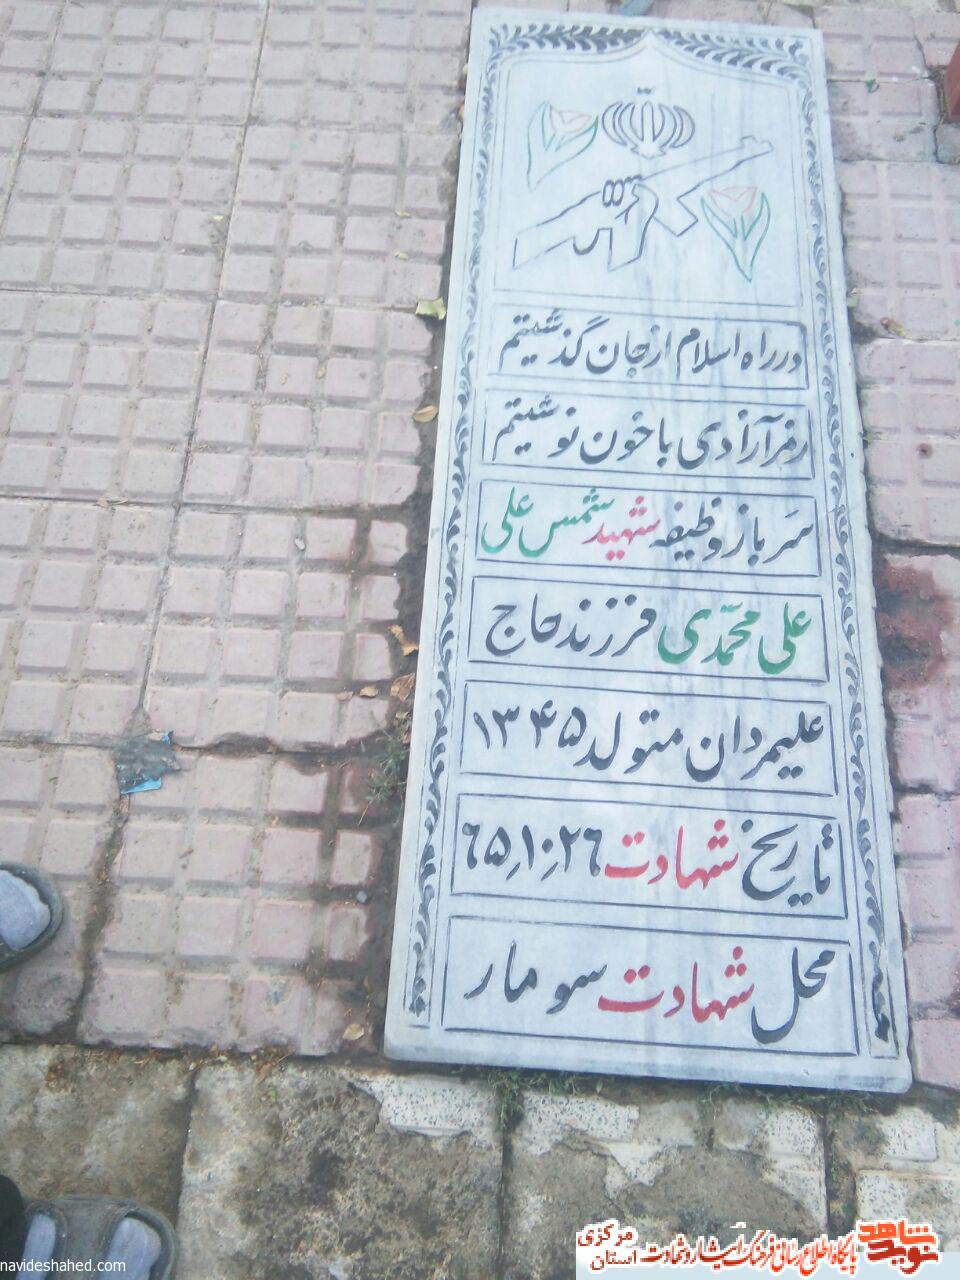 در راه اسلام از جان گذشتیم
رمز آزادی با خون نوشتیم
سرباز وظیفه شهید شمس علی
علی محمّدی فرزند حاج
علیمردان متولد ۱۳۴۵
تاریخ شهادت ۶۵٫۱۰٫۲۶
محل شهادت سومار
نوید شاهد
پایگاه اطلاع رسانی فرهنگ ایثار و شهادت
مرکزی
استان
navideshahed.com